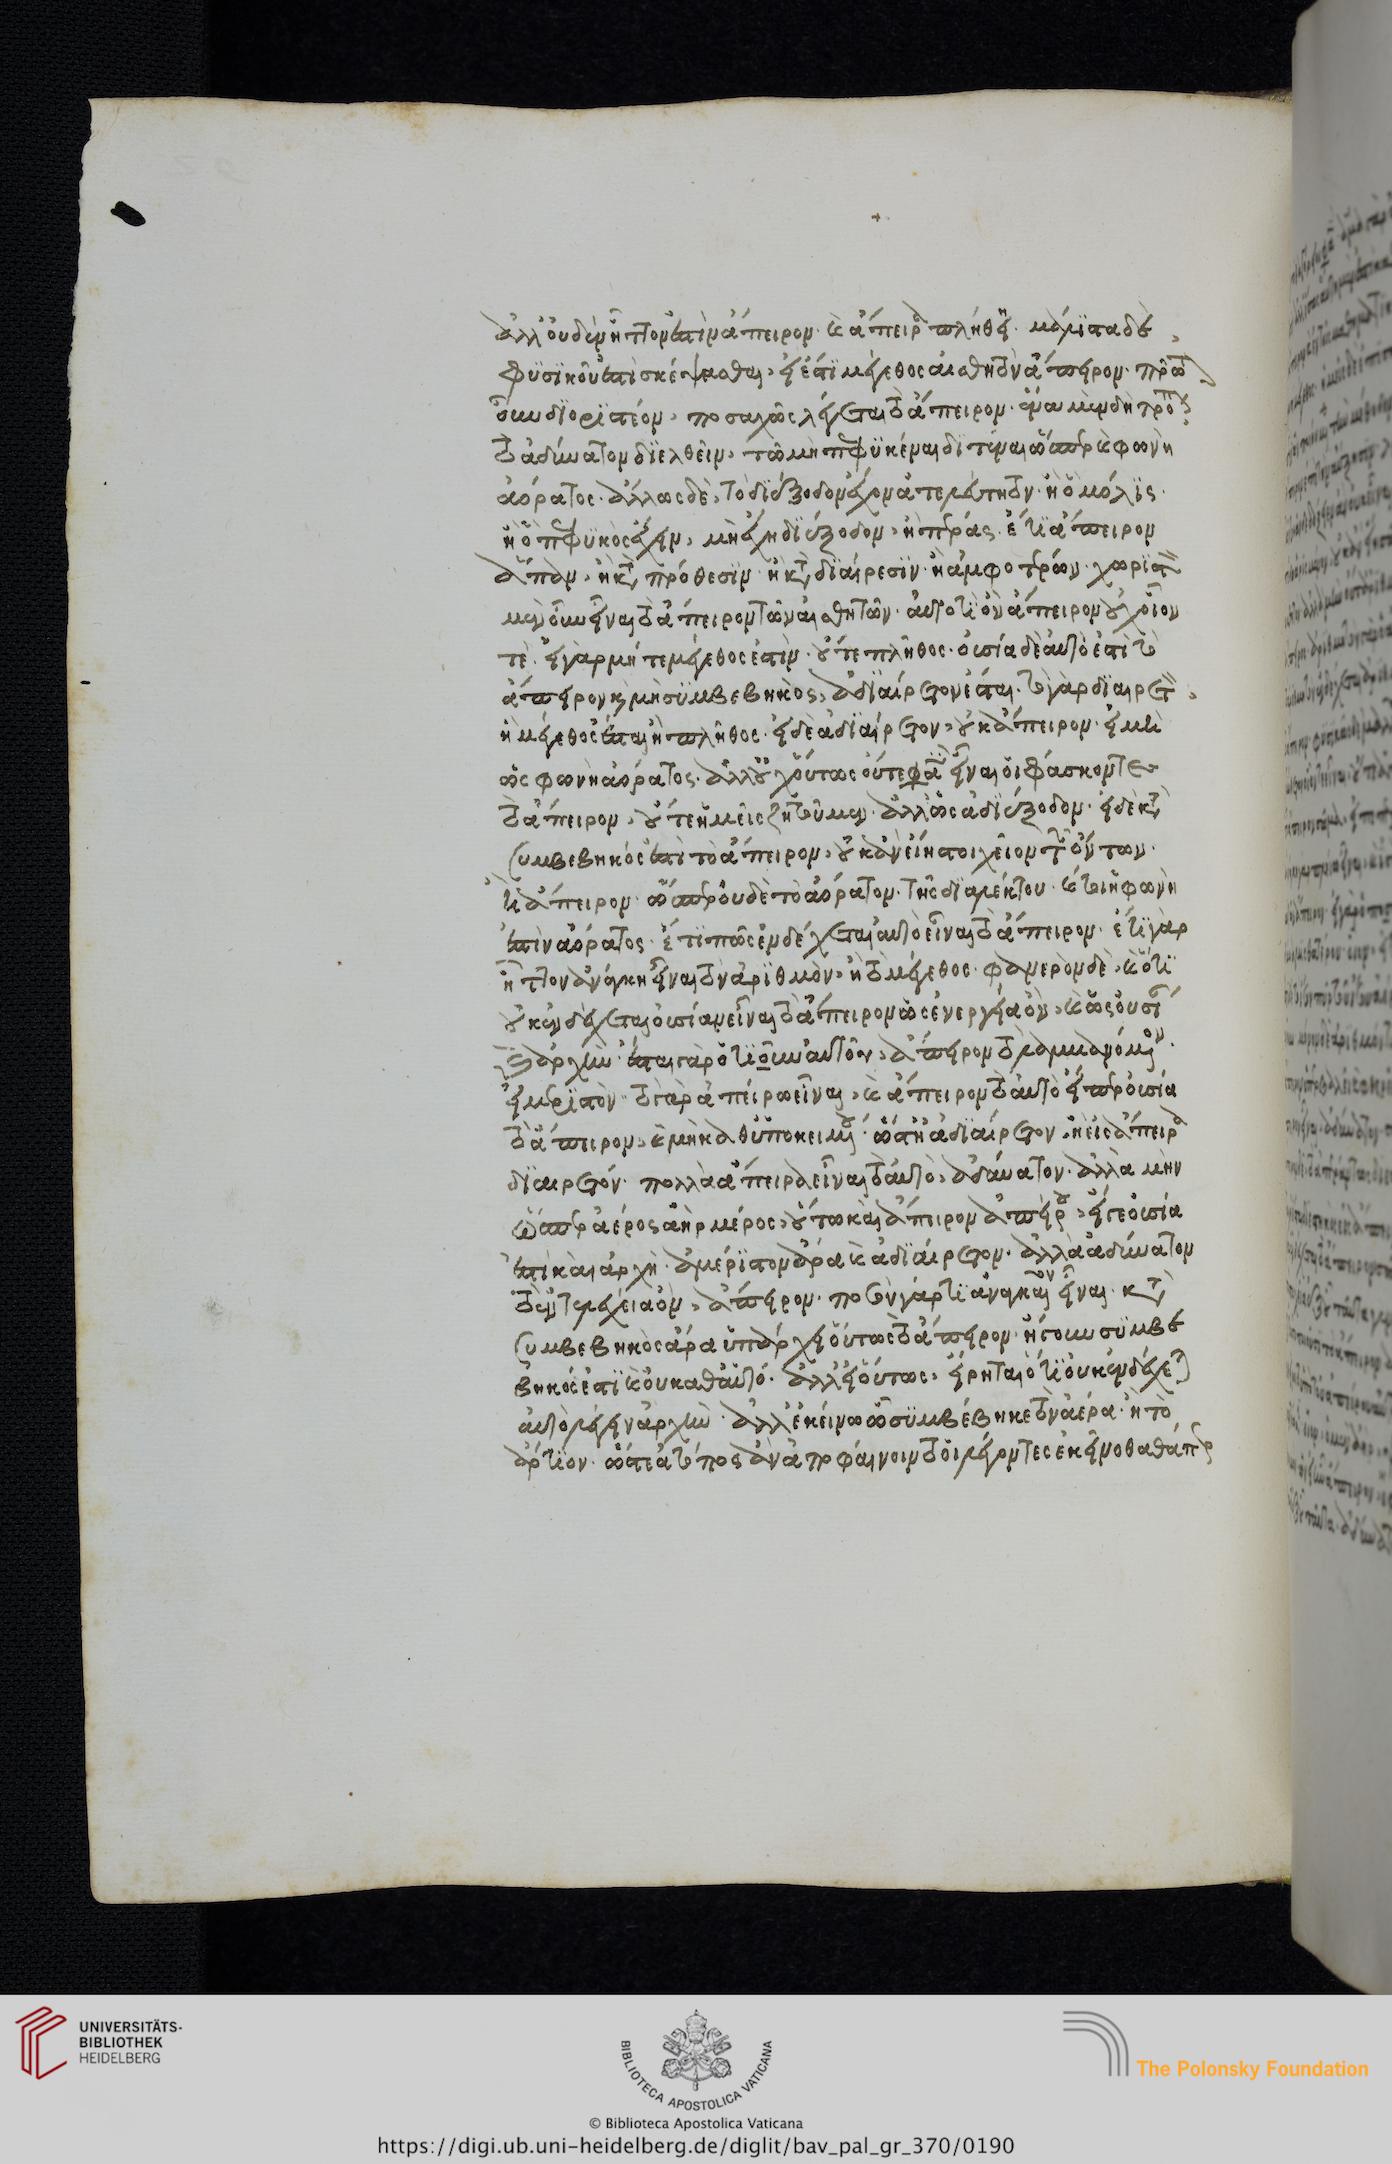 ἀλλ' οὐδὲν ἧττον ἐστὶν ἄπειρον. καὶ ἄπειρον πλήθει. μάλιστα δὲ
φυσικοῦ ἐστὶ σκέψασθαι, εἰ ἔστι μέγεθος αἰσθητὸν ἄπειρον. πρῶτον
οὖν διοριστέον, ποσαχῶς λέγεται τὸ ἄπειρον. ἕνα μὲν δὴ τρόπον
τὸ ἀδύνατον διελθεῖν, τῶ μὴ πεφυκέναι διιέναι ὥσπερ ἡ φωνὴ
ἀόρατος. ἄλλως δὲ, τὸ διέξοδον ἔχον ἀτελεύτητον. ἢ ὃ μόλις.
ἢ ὃ πεφυκὸς ἔχειν, μὴ ἔχει διέξοδον, ἢ πέρας. ἔτι ἄπειρον
ἅπαν, ἢ κατὰ πρόθεσιν ἢ κατὰ διαίρεσιν. ἢ ἀμφοτέρων. χωριστὸν
μὲν οὖν εἶναι τὸ ἄπειρον τῶν αἰσθητῶν. αὐτό τι ὂν ἄπειρον οὐχ οἷον
τὲ. εἰ γὰρ μήτε μέγεθος ἐστὶν. οὔτε πλῆθος. οὐσία δὲ αὐτὸ ἐστὶ τὸ
ἄπειρον καὶ μὴ συμβεβηκὸς, ἀδιαίρετον ἔσται. τὸ γὰρ διαιρετὸν,
ἢ μέγεθος ἔσται ἢ πλῆθος. εἰ δὲ ἀδιαίρετον, οὐκ ἄπειρον. εἰ μὴ
ὡς φωνὴ ἀόρατος. ἀλλ' οὐχ οὕτως οὔτε φασὶν εἶναι οἱ φάσκοντες
τὸ ἄπειρον, οὔτε ἡμεῖς ζητοῦμεν. ἀλλ' ὡς ἀδιέξοδον. εἰ δὲ κατὰ
συμβεβηκός ἐστὶ τὸ ἄπειρον, οὐκ ἂν εἴη στοιχεῖον τῶν ὄντων.
ἧ ἄπειρον. ὥσπερ οὐδὲ τὸ ἀόρατον. τῆς διαλέκτου. καίτοι ἡ φωνὴ
ἐστὶν ἀόρατος. ἔτι πῶς ἐνδέχεται αὐτὸ εἶναι τὸ ἄπειρον. ἔτι γὰρ
ἧττον ἀνάγκη εἶναι τὸν ἀριθμὸν, ἢ τὸ μέγεθος. φανερὸν δὲ, καὶ ὅτι
οὐκ ἐνδέχεται οὐσίαν εἶναι τὸ ἄπειρον ὡς ἐνεργείᾳ ὂν, καὶ ὡς οὐσίαν
καὶ ἀρχὴν. ἔσται γὰρ ὁτιοῦν αὐτοῦ, ἄπειρον τὸ λαμβανόμενον.
εἰ μεριστὸν. τὸ γὰρ ἀπείρω εἶναι, καὶ ἄπειρον τὸ αὐτὸ εἴπερ οὐσία
τὸ ἄπειρον, καὶ μὴ καθ' ὑποκειμένου. ὥστ' ἢ ἀδιαίρετον. ἢ εἰς ἄπειρα
διαιρετόν. πολλὰ ἄπειρα εἶναι τὸ αὐτὸ, ἀδύνατον. ἀλλὰ μὴν
ὥσπερ ἀέρος ἀὴρ μέρος, οὕτω καὶ ἄπειρον ἀπείρου, εἴγε οὐσία
ἐστὶ καὶ ἀρχὴ. ἀμέριστον ἄρα καὶ ἀδιαίρετον. ἀλλὰ ἀδύνατον
τὸ ἐντελεχεία ὂν, ἄπειρον. ποσὸν γάρ τι ἀναγκαῖον εἶναι. κατὰ
συμβεβηκὸς ἄρα ὑπάρχει οὕτως τὸ ἄπειρον. εἰ οὖν συμβε
βηκός ἐστὶ καὶ οὐ καθ' αὑτό. ἀλλ' εἰ οὕτως, εἴρηται ὅτι οὐκ ἐνδέχεται
αὐτὸ λέγειν ἀρχὴν. ἀλλ' ἐκείνω ὧ συμβέβηκε τὸν ἀέρα. ἢ τὸ
ἄρτιον. ὥστε ἀτόπως ἂν ἀποφαίνοιντο οἱ λέγοντες ἐκείνο καθάπερ
UNIVERSITÄTS-
BIBLIOTHEK
HEIDELBERG
BIBLIOTECA APOSTOLICA VATICANA
The Polonsky Foundation
© Biblioteca Apostolica Vaticana
https://digi.ub.uni-heidelberg.de/diglit/bav_pal_gr_370/0190